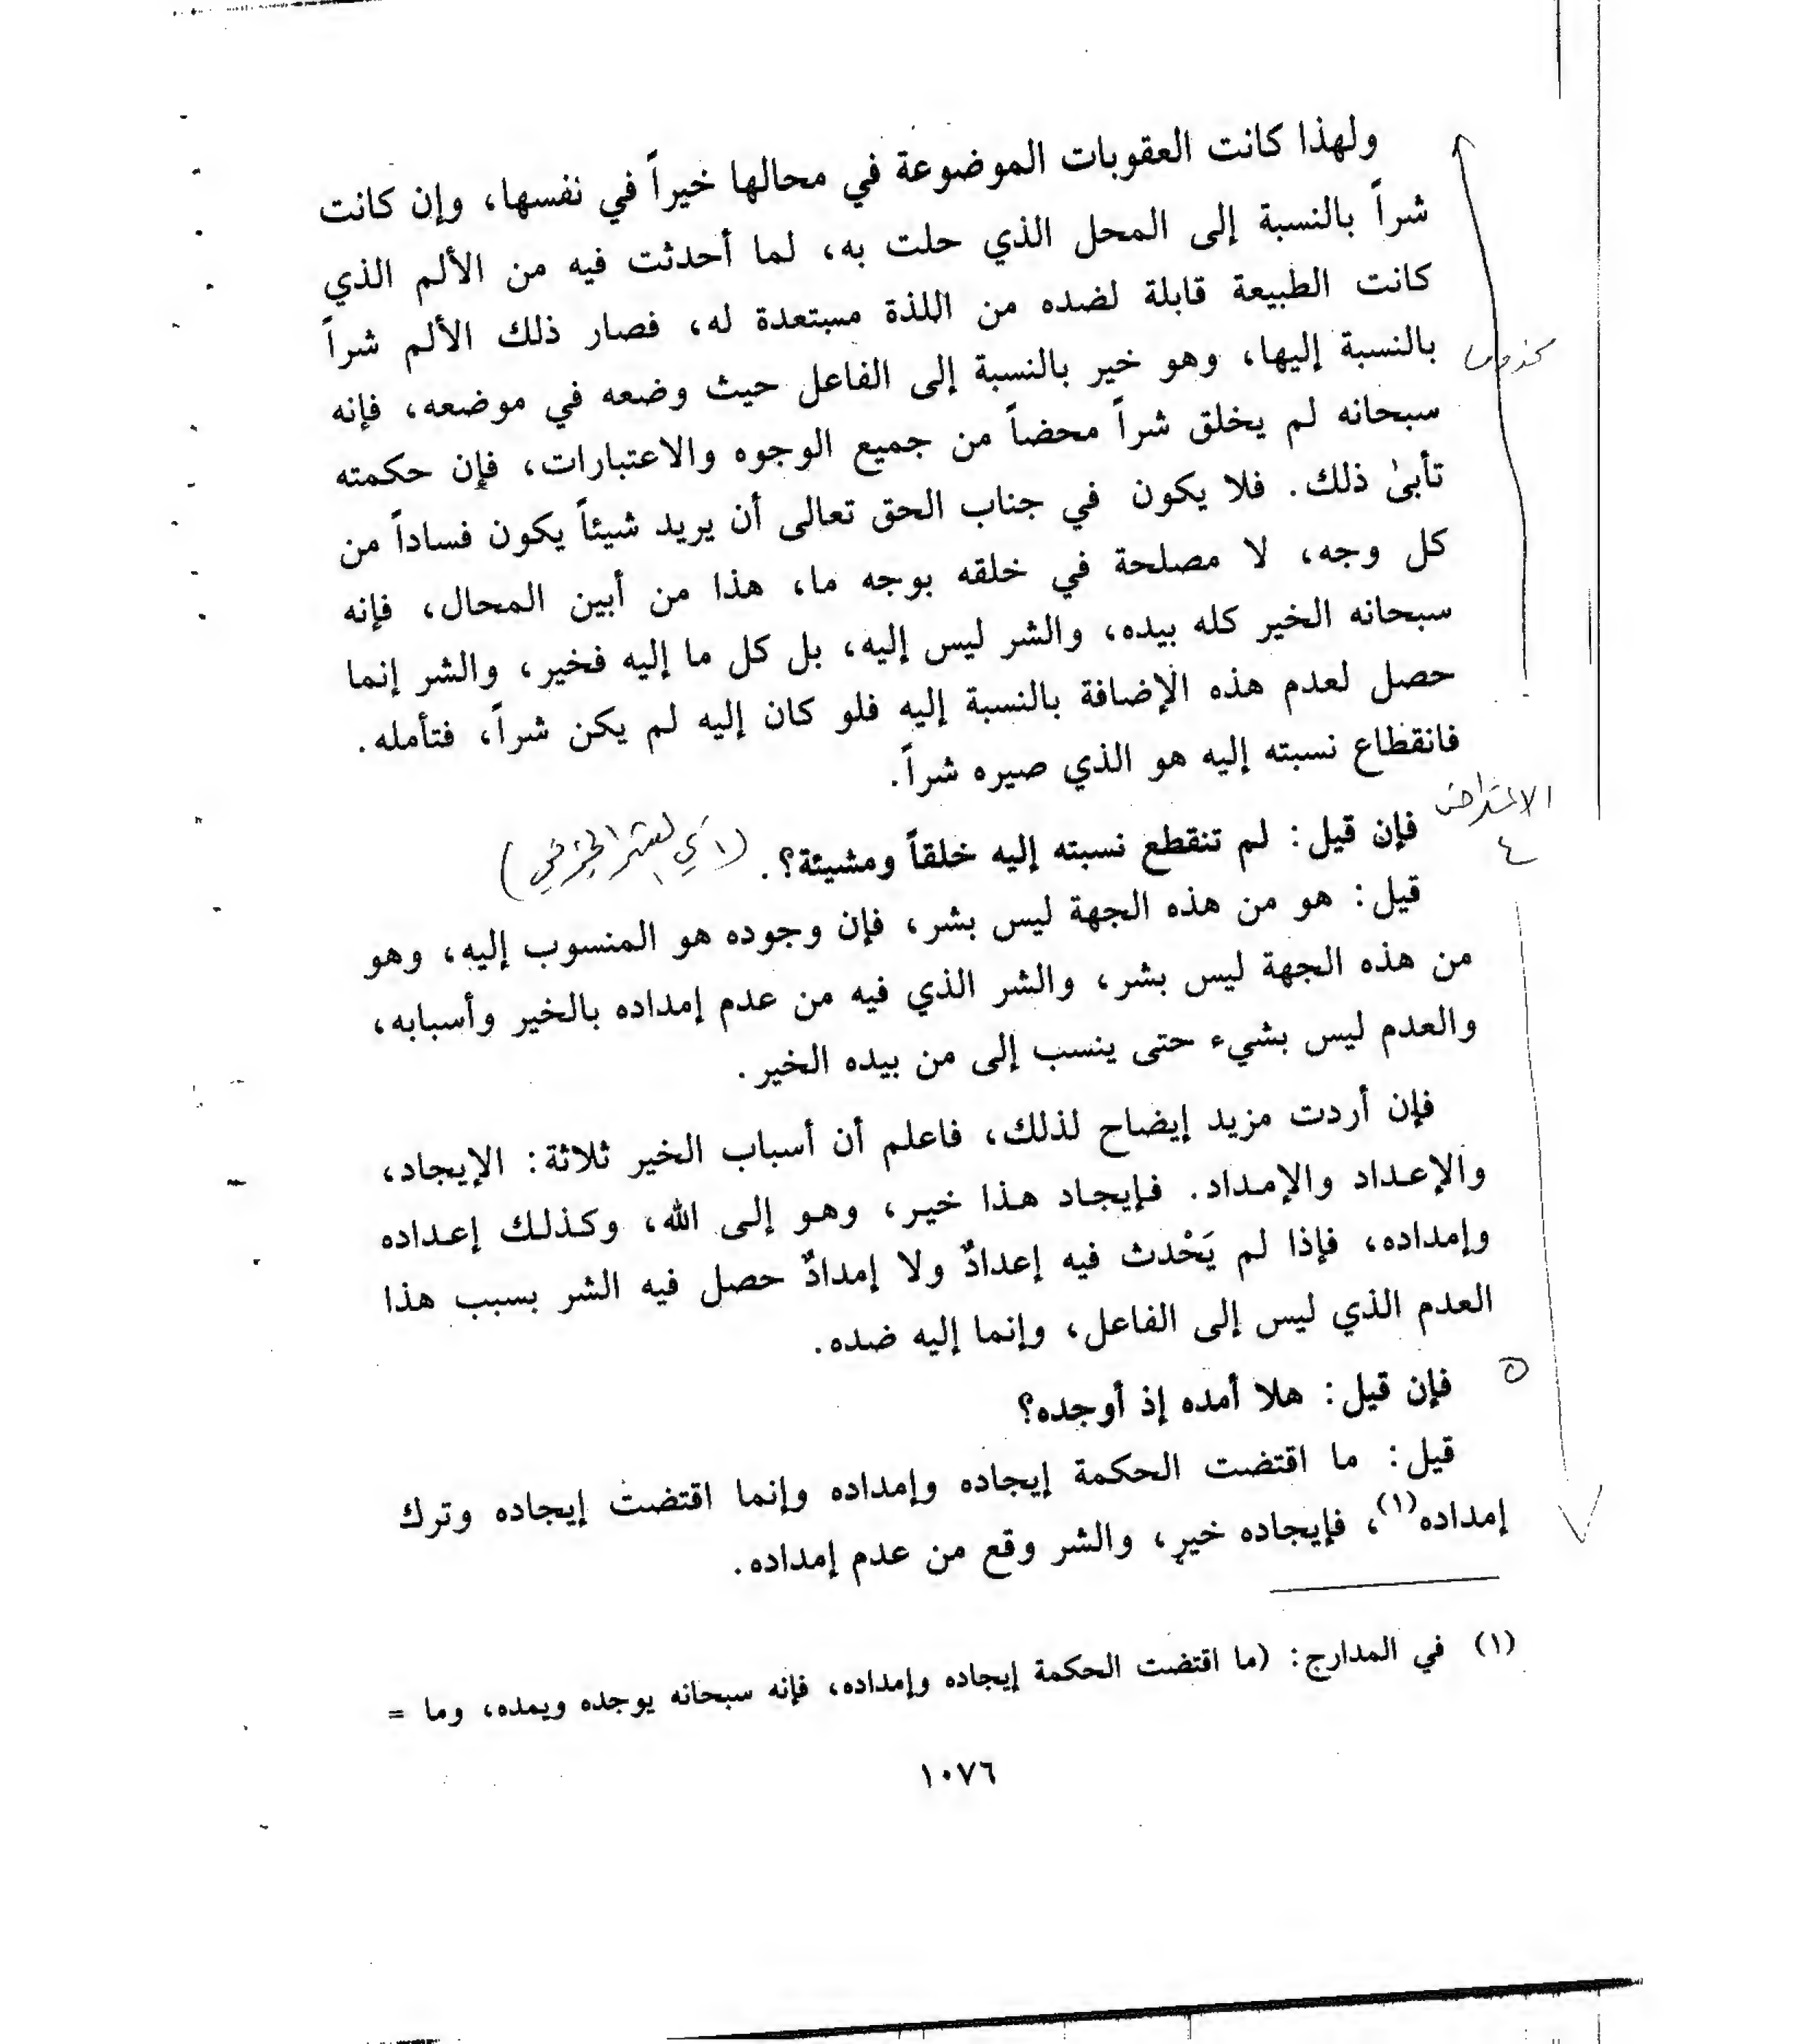 ولهذا كانت العقوبات الموضوعة في محالها خيراً في نفسها، وإن كانت
شراً بالنسبة إلى المحل الذي حلت به، لما أحدثت فيه من الألم الذي
كانت الطبيعة قابلة لضده من اللذة مستعدة له، فصار ذلك الألم شراً
بالنسبة إليها، وهو خير بالنسبة إلى الفاعل حيث وضعه في موضعه، فإنه
سبحانه لم يخلق شراً محضاً من جميع الوجوه والاعتبارات، فإن حكمته
تأبىٰ ذلك. فلا يكون في جناب الحق تعالى أن يريد شيئاً يكون فساداً من
كل وجه، لا مصلحة في خلقه بوجه ما، هذا من أبين المحال، فإنه
سبحانه الخير كله بيده، والشر ليس إليه، بل كل ما إليه فخير، والشر إنما
حصل لعدم هذه الإضافة بالنسبة إليه فلو كان إليه لم يكن شراً، فتأمله.
فانقطاع نسبته إليه هو الذي صيره شراً.
الاعتراض
٤
فإن قيل: لم تنقطع نسبته إليه خلقاً ومشيئة؟. (أي الشر الجزئي)
قيل: هو من هذه الجهة ليس بشر، فإن وجوده هو المنسوب إليه، وهو
من هذه الجهة ليس بشر، والشر الذي فيه من عدم إمداده بالخير وأسبابه،
والعدم ليس بشيء حتى ينسب إلى من بيده الخير.
فإن أردت مزيد إيضاح لذلك، فاعلم أن أسباب الخير ثلاثة: الإيجاد،
والإعداد والإمداد. فإيجاد هذا خير، وهو إلى الله، وكذلك إعداده
وإمداده، فإذا لم يَحْدث فيه إعدادٌ ولا إمدادٌ حصل فيه الشر بسبب هذا
العدم الذي ليس إلى الفاعل، وإنما إليه ضده.
٥
فإن قيل: هلا أمده إذ أوجده؟
قيل: ما اقتضت الحكمة إيجاده وإمداده وإنما اقتضت إيجاده وترك
إمداده(١)، فإيجاده خير، والشر وقع من عدم إمداده.
(١) في المدارج: (ما اقتضت الحكمة إيجاده وإمداده، فإنه سبحانه يوجده ويمده، وما =
١٠٧٦